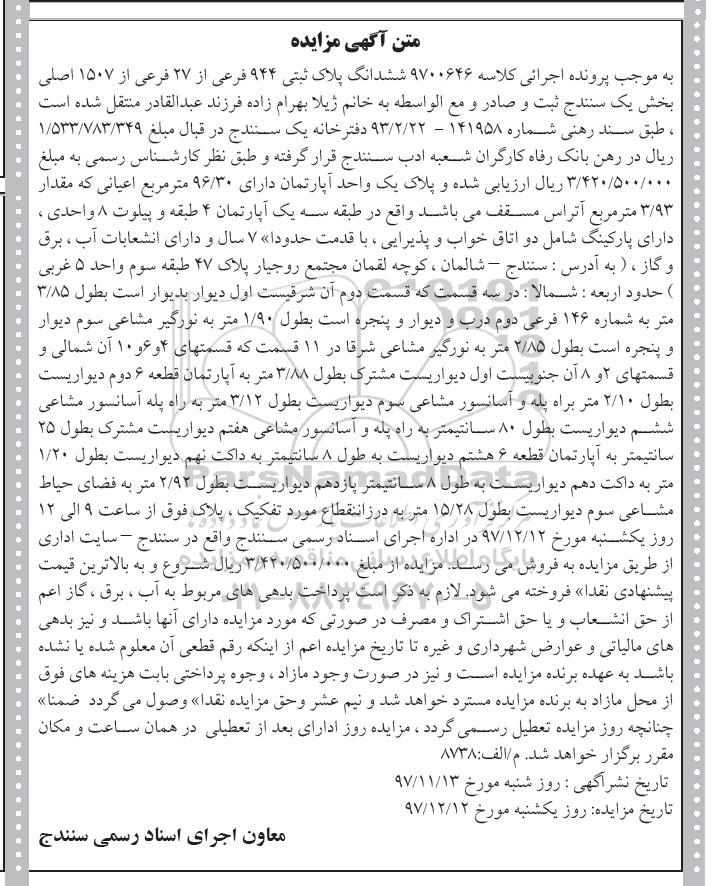 متن آگهی مزایده
به موجب پرونده اجرائی کلاسه ۹۷۰۰۶۴۶ ششدانگ پلاک ثبتی ۹۴۴ فرعی از ۲۷ فرعی از ۱۵۰۷ اصلی
بخش یک سنندج ثبت و صادر و مع الواسطه به خانم ژیلا بهرام زاده فرزند عبدالقادر منتقل شده است
، طبق سند رهنی شماره ۱۴۱۹۵۸ - ۹۳/۲/۲۲ دفترخانه یک سنندج در قبال مبلغ ۱/۵۳۳/۷۸۳/۳۴۹
ریال در رهن بانک رفاه کارگران شعبه ادب سنندج قرار گرفته و طبق نظر کارشناس رسمی به مبلغ
۳/۴۲۰/۵۰۰/۰۰۰ ریال ارزیابی شده و پلاک یک واحد آپارتمان دارای ۹۶/۳۰ مترمربع اعیانی که مقدار
۳/۹۳ مترمربع آتراس مسقف می باشد واقع در طبقه سه یک آپارتمان ۴ طبقه و پیلوت ۸ واحدی ،
دارای پارکینگ شامل دو اتاق خواب و پذیرایی ، با قدمت حدودا» ۷ سال و دارای انشعابات آب ، برق
و گاز ، ( به آدرس : سنندج – شالمان ، کوچه لقمان مجتمع روجیار پلاک ۴۷ طبقه سوم واحد ۵ غربی
) حدود اربعه : شمالا : در سه قسمت که قسمت دوم آن شرقیست اول دیوار بدیوار است بطول ۳/۸۵
متر به شماره ۱۴۶ فرعی دوم درب و دیوار و پنجره است بطول ۱/۹۰ متر به نورگیر مشاعی سوم دیوار
و پنجره است بطول ۲/۸۵ متر به نورگیر مشاعی شرقا در ۱۱ قسمت که قسمتهای ۴و۶و۱۰ آن شمالی و
قسمتهای ۲و ۸ آن جنوبیست اول دیواریست مشترک بطول ۳/۸۸ متر به آپارتمان قطعه ۶ دوم دیواریست
بطول ۲/۱۰ متر براه پله و آسانسور مشاعی سوم دیواریست بطول ۳/۱۲ متر به راه پله آسانسور مشاعی
ششم دیواریست بطول ۸۰ سانتیمتر به راه پله و آسانسور مشاعی هفتم دیواریست مشترک بطول ۲۵
سانتیمتر به آپارتمان قطعه ۶ هشتم دیواریست به طول ۸ سانتیمتر به داکت نهم دیواریست بطول ۱/۲۰
متر به داکت دهم دیواریست به طول ۸ سانتیمتر یازدهم دیواریست بطول ۲/۹۲ متر به فضای حیاط
مشاعی سوم دیواریست بطول ۱۵/۲۸ متر به درزانقطاع مورد تفکیک ، پلاک فوق از ساعت ۹ الی ۱۲
روز یکشنبه مورخ ۹۷/۱۲/۱۲ در اداره اجرای اسناد رسمی سنندج واقع در سنندج – سایت اداری
از طریق مزایده به فروش می رسد. مزایده از مبلغ ۳/۴۲۰/۵۰۰/۰۰۰ ریال شروع و به بالاترین قیمت
پیشنهادی نقدا» فروخته می شود. لازم به ذکر است پرداخت بدهی های مربوط به آب ، برق ، گاز اعم
از حق انشعاب و یا حق اشتراک و مصرف در صورتی که مورد مزایده دارای آنها باشد و نیز بدهی
های مالیاتی و عوارض شهرداری و غیره تا تاریخ مزایده اعم از اینکه رقم قطعی آن معلوم شده یا نشده
باشد به عهده برنده مزایده است و نیز در صورت وجود مازاد ، وجوه پرداختی بابت هزینه های فوق
از محل مازاد به برنده مزایده مسترد خواهد شد و نیم عشر وحق مزایده نقدا» وصول می گردد ضمنا»
چنانچه روز مزایده تعطیل رسمی گردد ، مزایده روز ادارای بعد از تعطیلی در همان ساعت و مکان
مقرر برگزار خواهد شد. م/الف:۸۷۳۸
تاریخ نشرآگهی : روز شنبه مورخ ۹۷/۱۱/۱۳
تاریخ مزایده: روز یکشنبه مورخ ۹۷/۱۲/۱۲
معاون اجرای اسناد رسمی سنندج
ParsNamadData
پایگاه اطلاع رسانی مناقصه و مزایده
۰۲۱-۸۸۳۴۹۶۷۰-۵